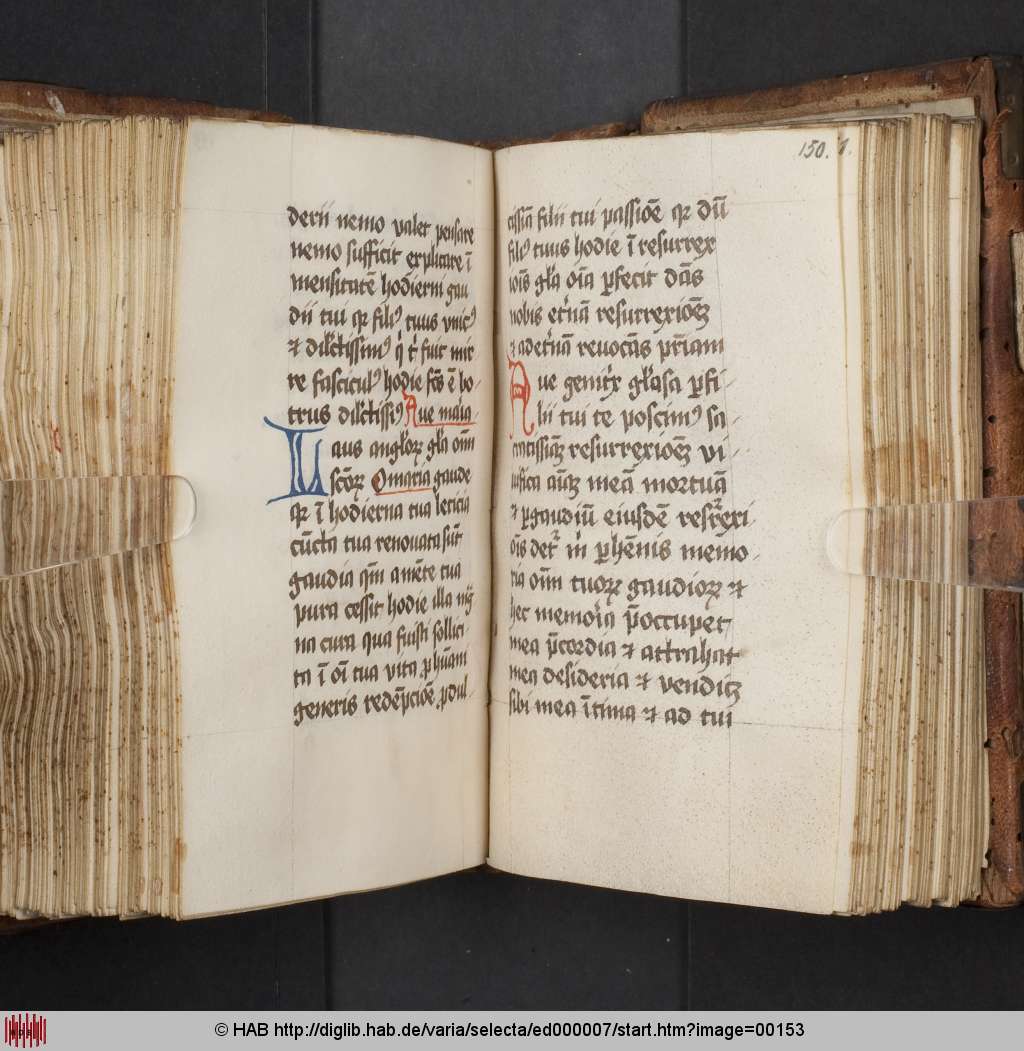 derii nemo valet pensare
nemo sufficit explicare ī
mensitatē hodierni gau
dii tui qꝛ filiꝰ tuus vnicꝰ
⁊ dilc̄tissimꝰ q̇ t̄ fuit mir
re fasciculꝰ hodie fc̄s ē bo-
trus dilc̄tissiꝰ Aue maīa
Laus angl̄oꝝ gl̄a om̄
scōꝝ O maria gaude
qꝛ ī hodierna tua leticia
cūcta tua renouata sūt
gaudia qm̄ a mēte tua
pura cessit hodie illa
na cura qua fuisti sollici-
ta ī oī tua vita ꝓ hūani
generis redēpcioē ꝓdul-
150. 1.
cissīa filii tui passiōē qꝛ dū
filiꝰ tuus hodie ī resurrex
iōīs gl̄a oīa ꝑfecit dās
nobis et̄nā resurrexiōeꝫ
⁊ ad et̄nā reuocās pr̄iam
Aue genitꝛ gl̄osa ꝑ fi-
lii tui te poscimꝰ sa
cratissiāꝫ resurrexiōeꝫ vi-
uifica aīāꝫ meā mortuā
⁊ ꝑ gaudiū eiusdē resr̄rexi-
ōīs det̄ m̄ ꝑhēnis memo-
ria om̄ tuoꝝ gaudioꝝ ⁊
hec memoīa p̄occupet
mea p̄cordia ⁊ attrahat
mea desideria ⁊ vendicꝫ
sibi mea ītima ⁊ ad tui
© HAB http://diglib.hab.de/varia/selecta/ed000007/start.htm?image=00153